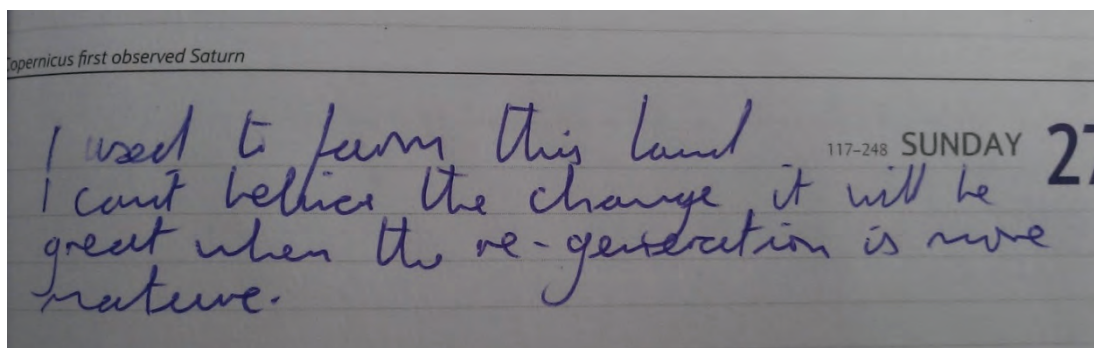 Copernicus first observed Saturn
I used to farm this land
117–248 SUNDAY 27
I can't believe the change it will be
great when the re-generation is more
mature.